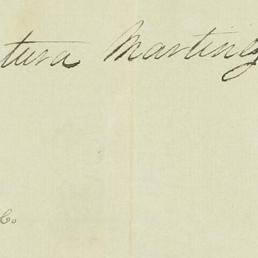 tura Martinez
Co.